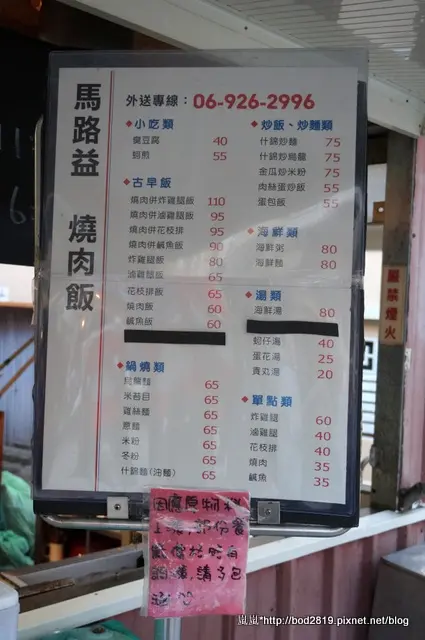 馬路益 燒肉飯
外送專線：06-926-2996
◆小吃類
臭豆腐 40
蚵煎 55
◆古早飯
燒肉併炸雞腿飯 110
燒肉併滷雞腿飯 95
燒肉併花枝排 95
燒肉併鹹魚飯 90
炸雞腿飯 80
滷雞腿飯 65
花枝排飯 65
燒肉飯 60
鹹魚飯 60
◆鍋燒類
烏龍麵 65
米苔目 65
雞絲麵 65
意麵 65
米粉 65
冬粉 65
什錦麵(油麵) 65
◆炒飯、炒麵類
什錦炒麵 75
什錦炒烏龍 75
金瓜炒米粉 75
肉絲蛋炒飯 55
蛋包飯 55
◆海鮮類
海鮮粥 80
海鮮麵 80
◆湯類
海鮮湯 80
蚵仔湯 40
蛋花湯 25
貢丸湯 20
◆單點類
炸雞腿 60
滷雞腿 40
花枝排 40
燒肉 35
鹹魚 35
因應原物料
上漲,部份餐
嚴禁煙火
嵐嵐*http://bod2819.pixnet.net/blog